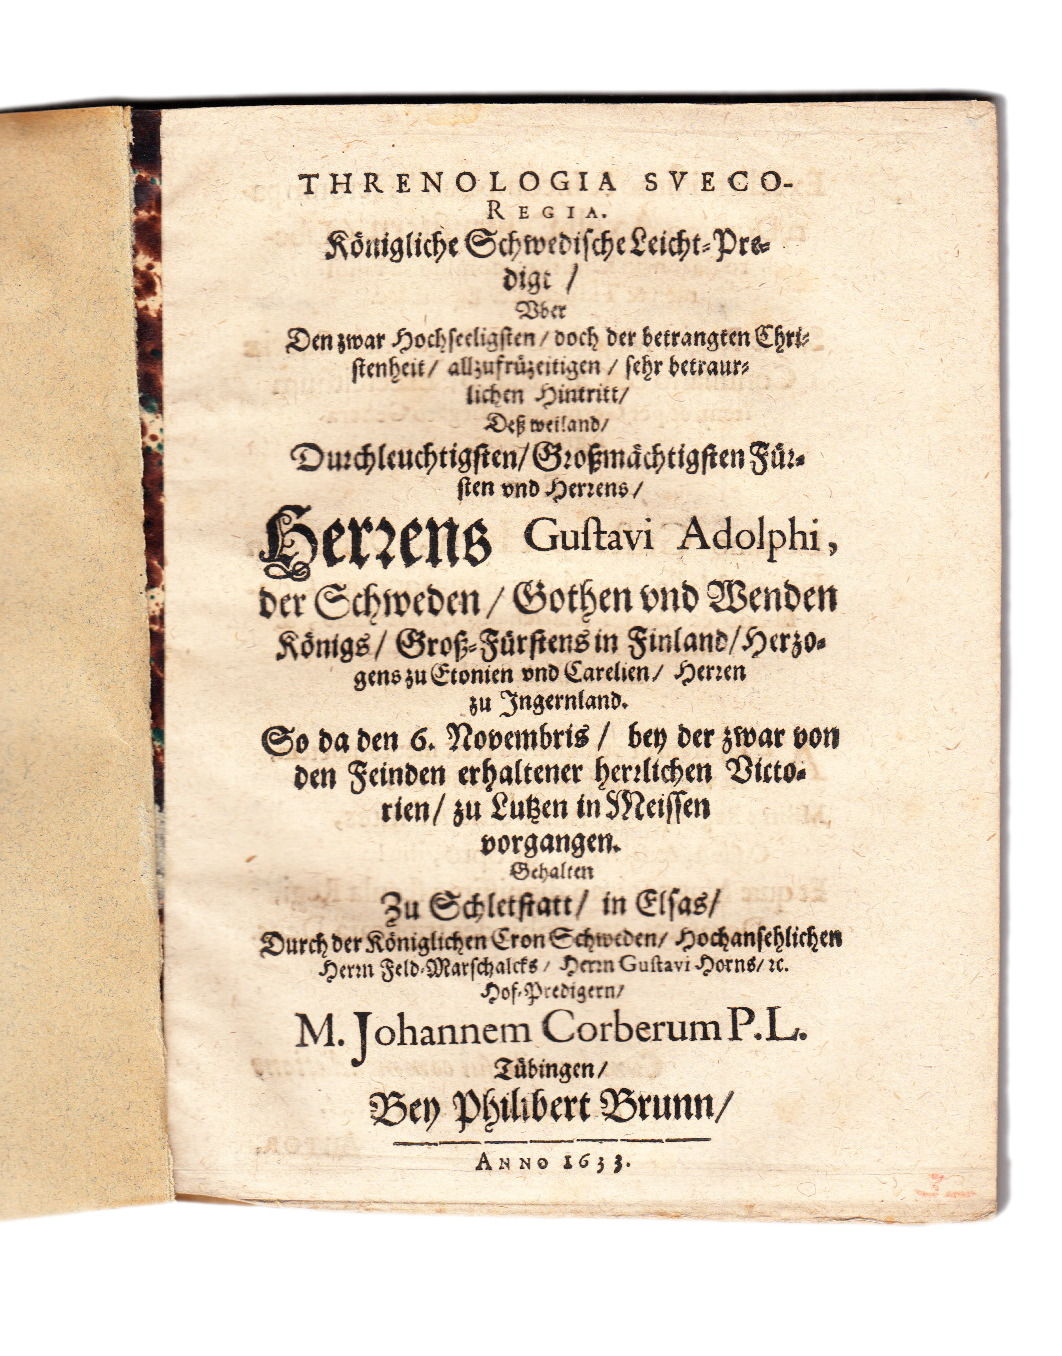 THRENOLOGIA SVECO-
REGIA.
Königliche Schwedische Leicht-Pre-
digt /
Vber
Den zwar Hochseeligsten / doch der betrangten Chri-
stenheit / allzufrüzeitigen / sehr betraur-
lichen Hintritt /
Deß weiland /
Durchleuchtigsten / Großmächtigsten Für-
sten vnd Herrens /
Herrens Gustavi Adolphi,
der Schweden / Gothen vnd Wenden
Königs / Groß-Fürstens in Finland / Herzo-
gens zu Etonien vnd Carelien / Herren
zu Ingernland.
So da den 6. Novembris / bey der zwar von
den Feinden erhaltener herrlichen Victo-
rien / zu Lutzen in Meissen
vorgangen.
Gehalten
Zu Schletstatt / in Elsas /
Durch der Königlichen Cron Schweden / Hochansehlichen
Herrn Feld-Marschalcks / Herrn Gustavi Horns / ꝛc.
Hof-Predigern /
M. Johannem Corberum P.L.
Tübingen /
Bey Philibert Brunn /
ANNO 1633.